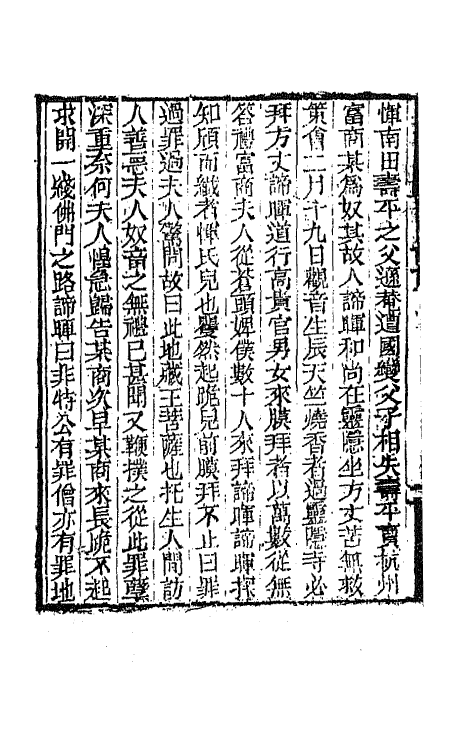 惲南田壽平之父遜菴遭國變父子相失壽平賣杭州
富商某爲奴其故人諦暉和尚在靈隱坐方丈苦無救
策會二月十九日觀音生辰天竺燒香者過靈隱寺必
拜方丈諦暉道行高貴官男女來膜拜者以萬數從無
答禮富商夫人從蒼頭婢僕數十人來拜諦暉諦暉探
知頎而纖者惲氏兒也矍然起跪兒前膜拜不止曰罪
過罪過夫人驚問故曰此地藏王菩薩也托生人間訪
人善惡夫人奴畜之無禮已甚聞又鞭撲之從此罪孽
深重奈何夫人惶急歸告某商次早某商來長跪不起
求開一綫佛門之路諦暉曰非特公有罪僧亦有罪地